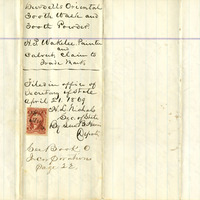 Burdell's Oriental
Tooth Wash and
Tooth Powder.
H. P. Wakelee, Painter
and
Calvert, Claim to
Trade Mark.
Filed in office of
Secretary of State
April 21, 1869
H. L. Nichols
Sec. of State
By
Deputy
See Book
Incorporations
Page 22